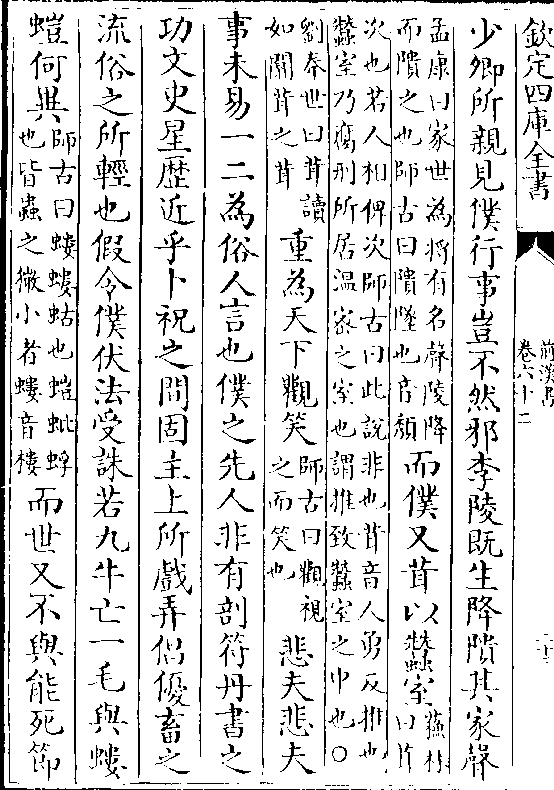 欽定四庫全書
前漢書
卷六十二
少卿所親見僕行事豈不然邪李陵既生降隤其家聲
孟康曰家世為將有名聲陵降
而隤之也師古曰隤墜也音頹
而僕又茸以蠶室
蘇林
曰茸
次也若人相俾次師古曰此説非也茸音人勇反推也
蠶室乃腐刑所居温宻之室也謂推致蠶室之中也○
劉奉世曰茸讀
如闒茸之茸
重為天下觀笑
師古曰觀視
之而笑也
悲夫悲夫
事未易一二為俗人言也僕之先人非有剖符丹書之
功文史星歴近乎卜祝之間固主上所戲弄倡優畜之
流俗之所輕也假令僕伏法受誅若九牛亡一毛與螻
螘何異
師古曰螻螻蛄也螘蚍蜉
也皆蟲之微小者螻音樓
而世又不與能死節